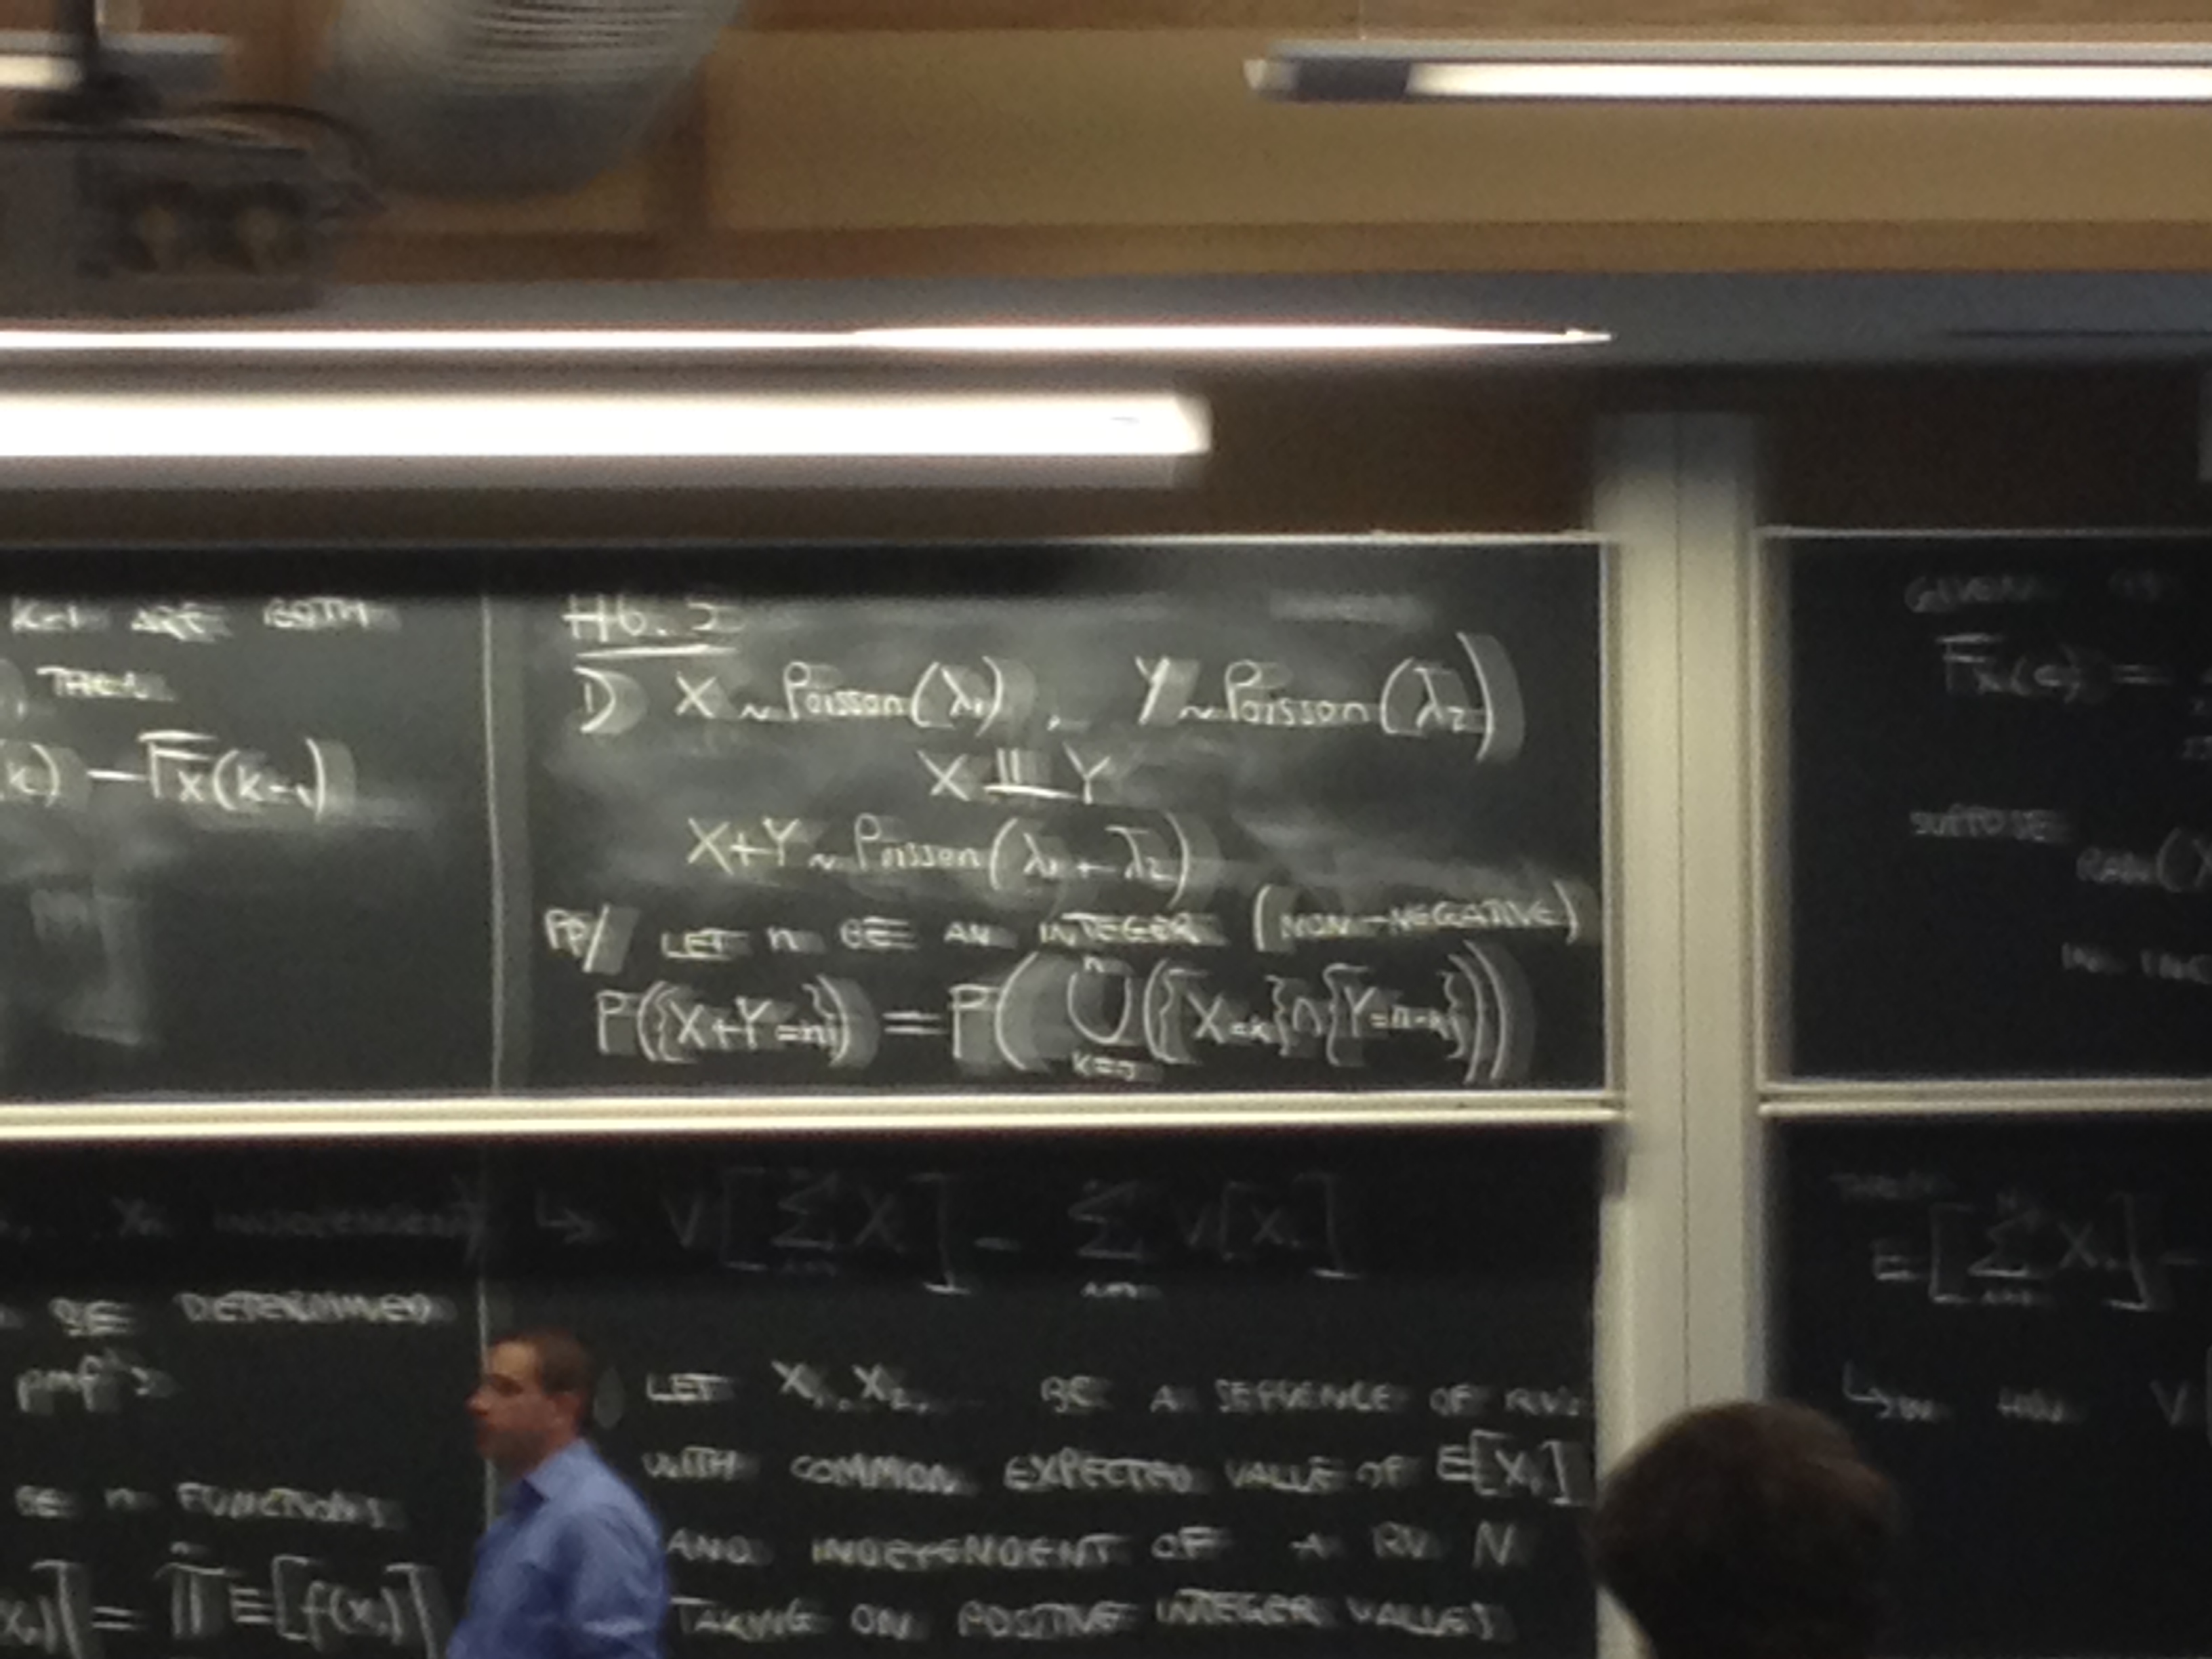 K-1 ARE BOTH
, THEN
(k) - F_X(k-1)
H6.5
1) X ~ Poisson(λ₁), Y ~ Poisson(λ₂)
X ⫫ Y
X+Y ~ Poisson(λ₁+λ₂)
PF/ LET n BE AN INTEGER (NON-NEGATIVE)
P({X+Y=n}) = P(⋃_{k=0}^{n}({X=k}∩{Y=n-k}))
GIVEN
F_X(a) =
SUPPOSE
RAN(X
INDEPENDENT ↳ V[ΣX] = ΣV[X]
BE DETERMINED
pmf's
BE n FUNCTIONS
= ∏ E[f(X)]
LET X₁, X₂, BE A SEQUENCE OF RVs
WITH COMMON EXPECTED VALUE OF E[X₁]
AND INDEPENDENT OF A RV N
TAKING ON POSITIVE INTEGER VALUES
THEN
E[ΣX] =
↳ V[